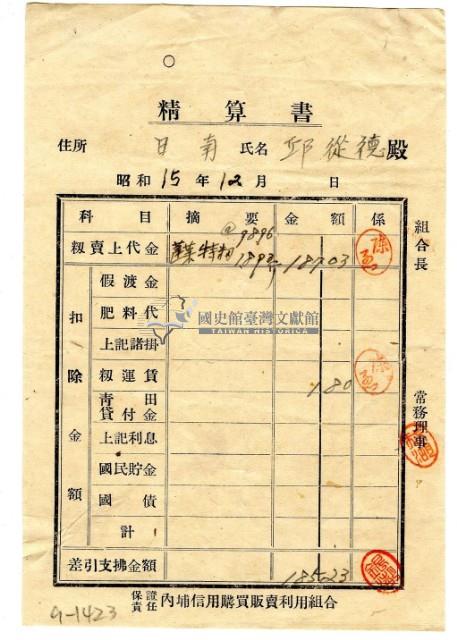 精算書
住所 日南 氏名 邱從德殿
昭和15年12月 日
科目 摘要 金額 係
籾賣上代金 蓬萊特籾 @9896 187.03
組合長
扣除金額
假渡金
肥料代
上記諸掛
國史館臺灣文獻館
TAIWAN HISTORICA
籾運賃 1.80
青田貸付金
常務理事
上記利息
國民貯金
國債
計
差引支拂金額 185.23
保證責任 內埔信用購買販賣利用組合
9-1423